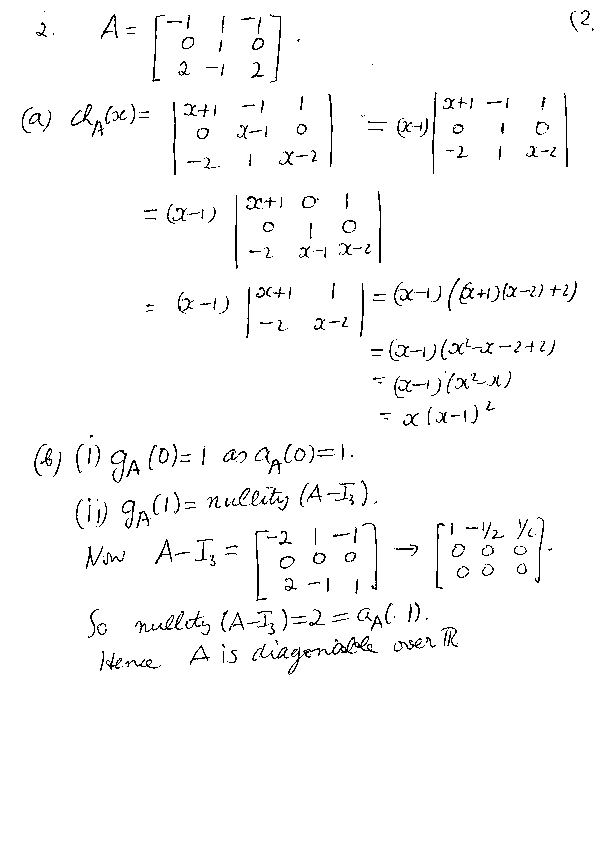 2. A = [ -1 1 -1 ; 0 1 0 ; 2 -1 2 ]. (2.
(a) ch_A(x) = | x+1 -1 1 ; 0 x-1 0 ; -2 1 x-2 | = (x-1) | x+1 -1 1 ; 0 1 0 ; -2 1 x-2 |
= (x-1) | x+1 0 1 ; 0 1 0 ; -2 x-1 x-2 |
= (x-1) | x+1 1 ; -2 x-2 | = (x-1)((x+1)(x-2)+2)
= (x-1)(x²-x-2+2)
= (x-1)(x²-x)
= x(x-1)²
(b) (i) g_A(0)=1 as a_A(0)=1.
(ii) g_A(1) = nullity (A-I₃).
Now A-I₃ = [ -2 1 -1 ; 0 0 0 ; 2 -1 1 ] → [ 1 -1/2 1/2 ; 0 0 0 ; 0 0 0 ].
So nullity (A-I₃)=2=a_A(1).
Hence A is diagonable over ℝ